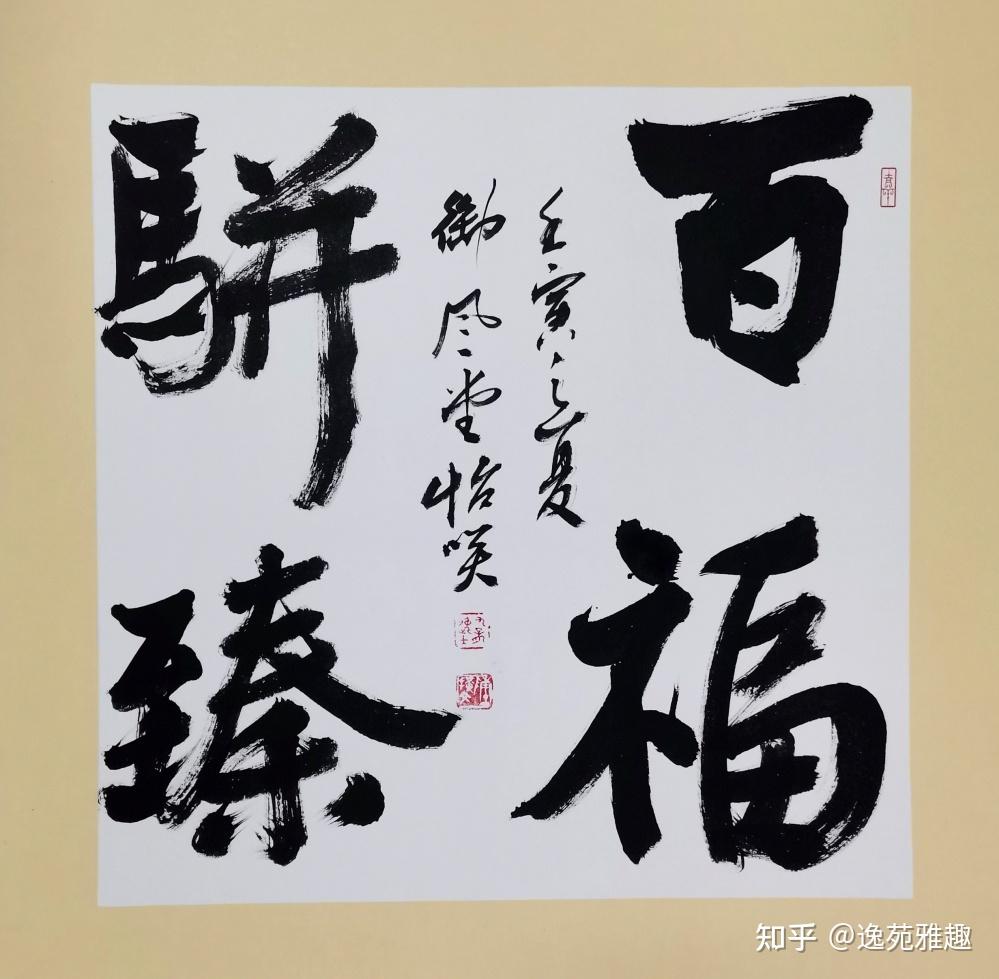 百福
駢臻
壬寅之夏
御风堂怡笑
知乎 @逸苑雅趣